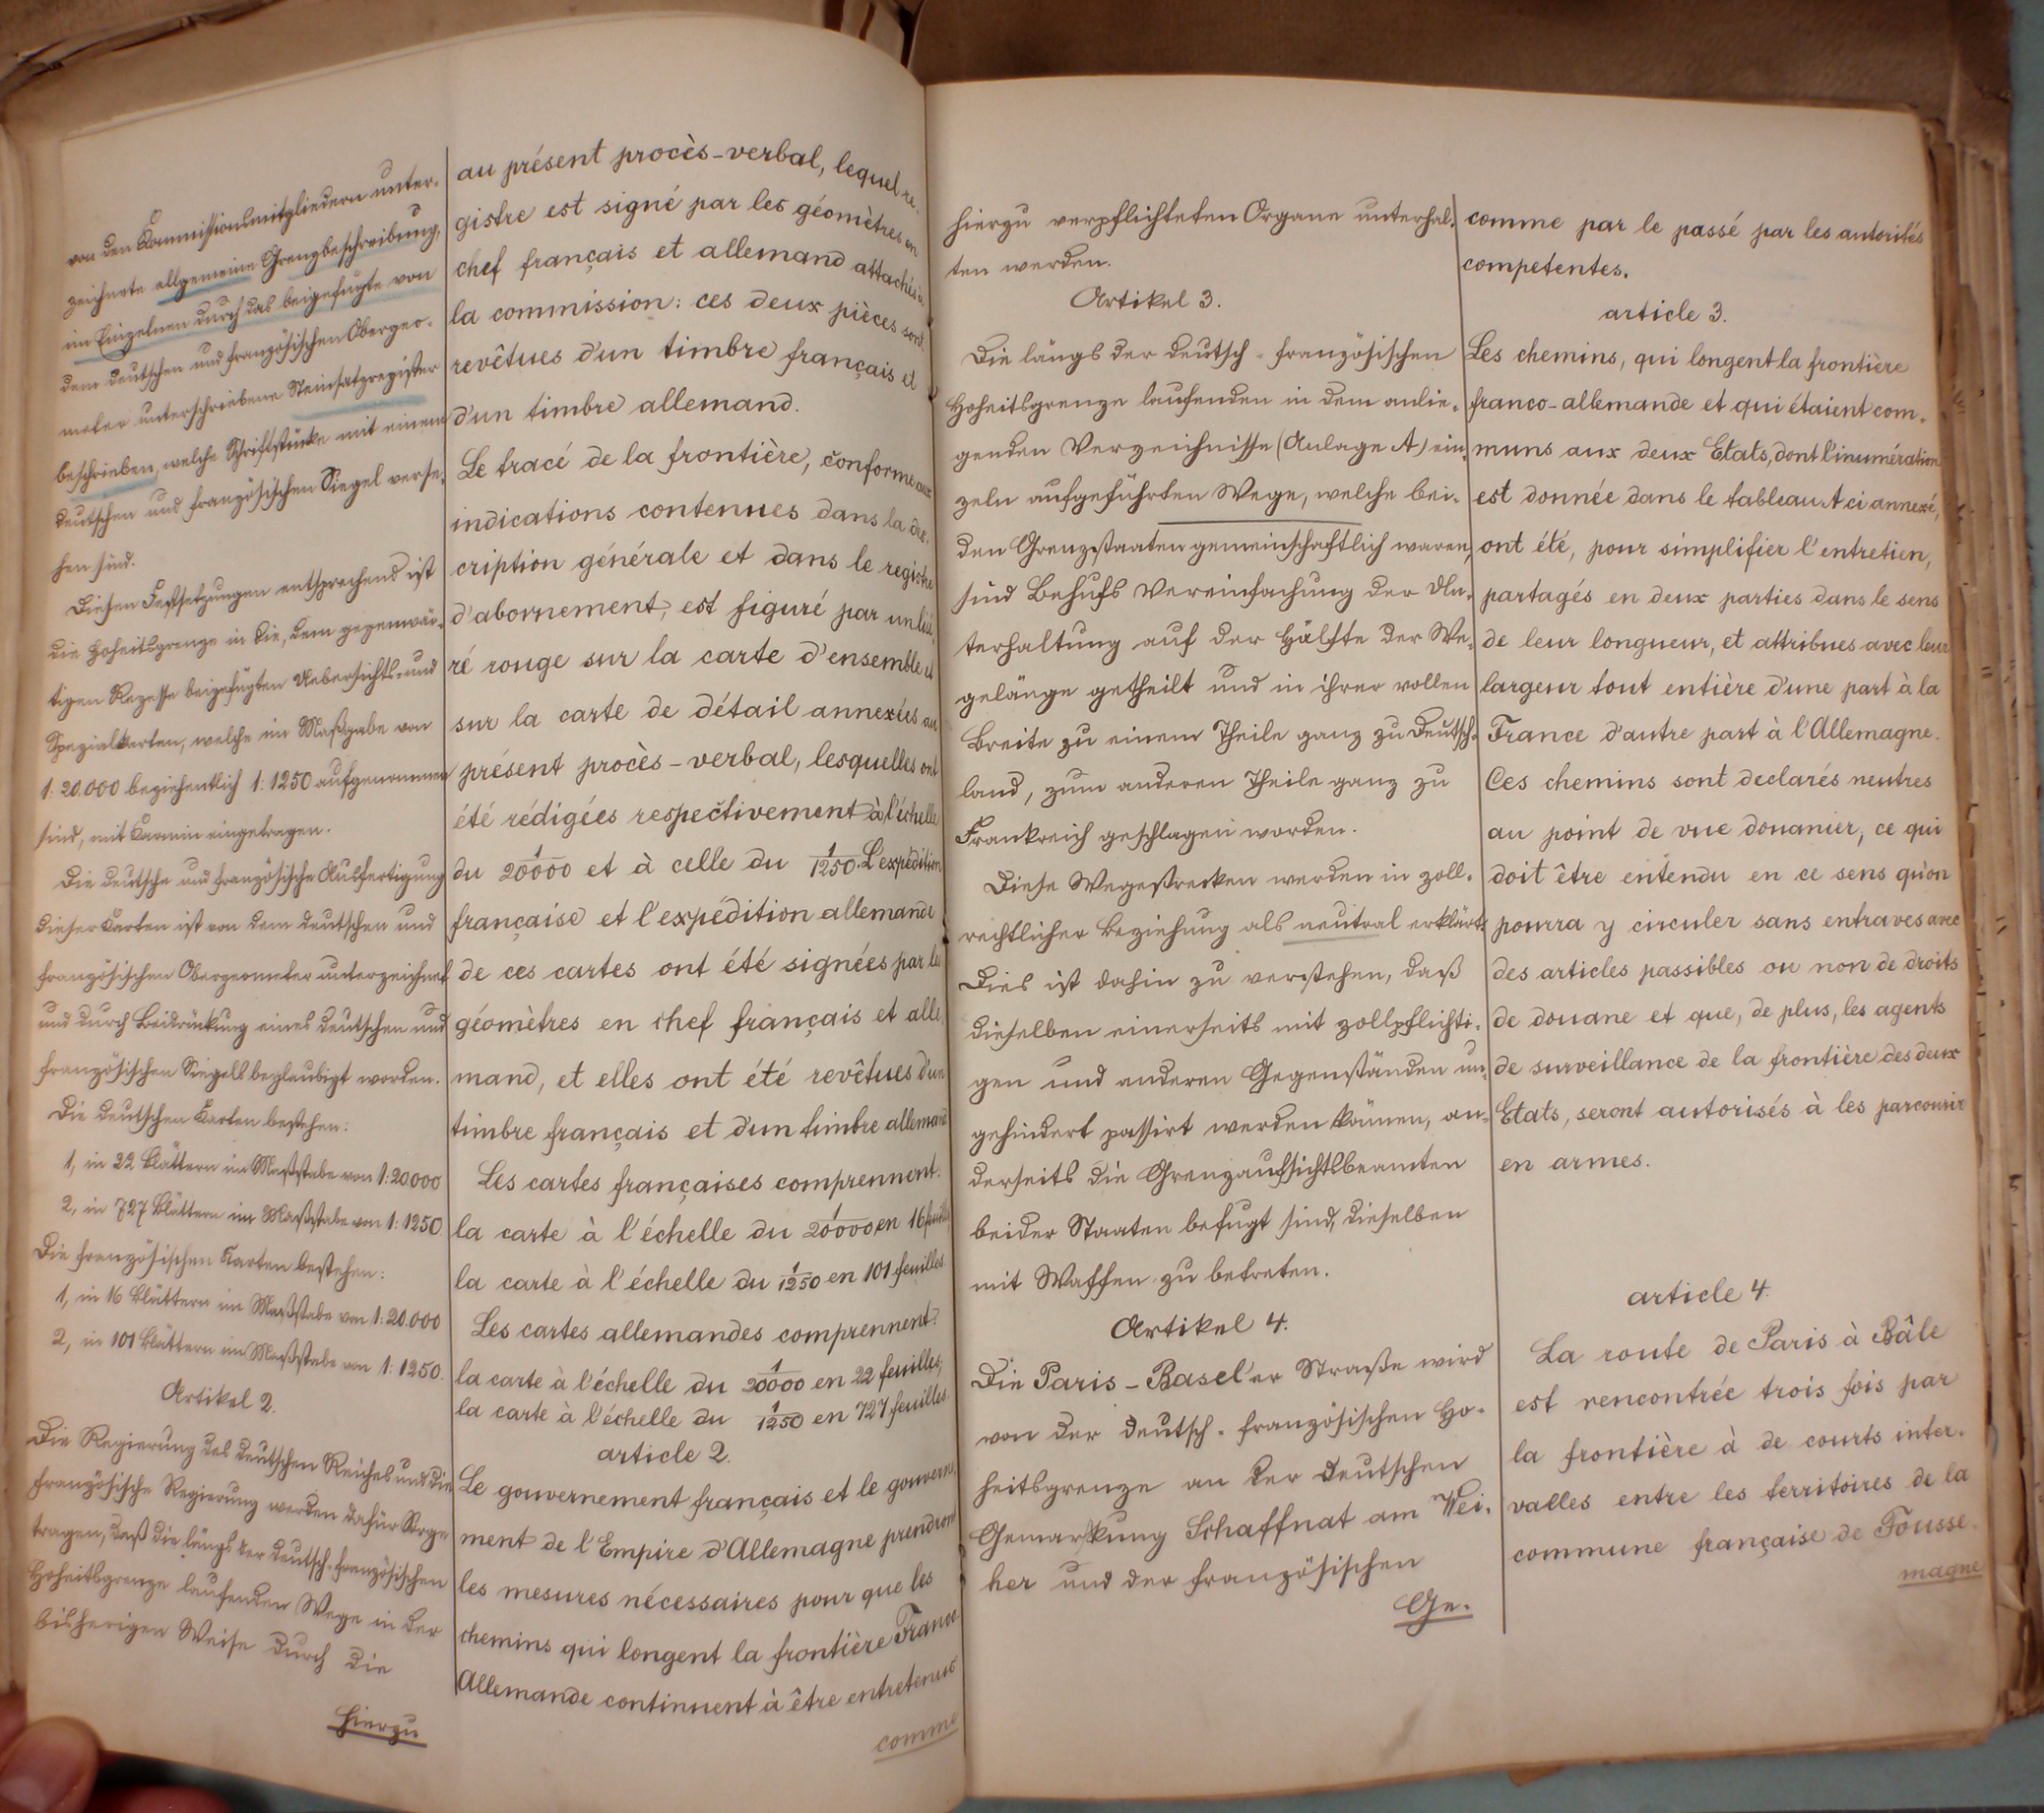 von den Kommissionsmitgliedern unter-
zeichnete allgemeine Grenzbeschreibung,
im Einzelnen durch das beigefügte von
dem deutschen und französischen Obergeo-
meter unterschriebene Steinsatzregister
beschrieben, welche Schriftstücke mit einem
deutschen und französischen Siegel verse-
hen sind.
Diesen Festsetzungen entsprechend ist
die Hoheitsgrenze in die, dem gegenwär-
tigen Rezesse beigefügten Uebersichts- und
Spezialkarten, welche im Maßgabe von
1:20.000 beziehentlich 1:1250 aufgenommen
sind, mit Karmin eingetragen.
Die deutsche und französische Ausfertigung
dieser Karten ist von dem deutschen und
französischen Obergeometer unterzeichnet
und durch Beidrückung eines deutschen und
französischen Siegels beglaubigt worden.
Die deutschen Karten bestehen:
1, in 22 Blättern im Maßstabe von 1:20000
2, in 727 Blättern im Maßstabe von 1:1250.
Die französischen Karten bestehen:
1, in 16 Blättern im Maßstabe von 1:20.000
2, in 101 Blättern im Maßstabe von 1:1250.
Artikel 2.
Die Regierung des deutschen Reiches und die
französische Regierung werden dafür Sorge
tragen, daß die längs der deutsch-französischen
Hoheitsgrenze laufenden Wege in der
bisherigen Weise durch die
hierzu
au présent procès-verbal, lequel re-
gistre est signé par les géomètres en
chef français et allemand attachés à
la commission: ces deux pièces sont
revêtues d'un timbre français et
d'un timbre allemand.
Le tracé de la frontière, conforme aux
indications contenues dans la des-
cription générale et dans le registre
d'abornement, est figuré par un lisé-
ré rouge sur la carte d'ensemble et
sur la carte de détail annexées au
présent procès-verbal, lesquelles ont
été rédigées respectivement à l'échelle
du 1/20000 et à celle du 1/1250. L'expédition
française et l'expédition allemande
de ces cartes ont été signées par les
géomètres en chef français et alle-
mand, et elles ont été revêtues d'un
timbre français et d'un timbre allemand
Les cartes françaises comprennent:
la carte à l'échelle du 1/20000 en 16 feuilles
la carte à l'échelle du 1/1250 en 101 feuilles.
Les cartes allemandes comprennent:
la carte à l'échelle du 1/20000 en 22 feuilles,
la carte à l'échelle du 1/1250 en 727 feuilles.
article 2.
Le gouvernement français et le gouverne-
ment de l'Empire d'Allemagne prendront
les mesures nécessaires pour que les
chemins qui longent la frontière Franco-
Allemande continuent à être entretenus
comme
hierzu verpflichteten Organe unterhal-
ten werden.
Artikel 3.
Die längs der deutsch-französischen
Hoheitsgrenze laufenden in dem anlie-
genden Verzeichnisse (Anlage A) ein-
zeln aufgeführten Wege, welche bei-
den Grenzstaaten gemeinschaftlich waren,
sind Behufs Vereinfachung der Un-
terhaltung auf der Hälfte der We-
gelänge getheilt und in ihrer vollen
Breite zu einem Theile ganz zu Deutsch-
land, zum anderen Theile ganz zu
Frankreich geschlagen worden.
Diese Wegestrecken werden in zoll-
rechtlicher Beziehung als neutral erklärt.
Dies ist dahin zu verstehen, daß
dieselben einerseits mit zollpflichti-
gen und anderen Gegenständen un-
gehindert passirt werden können, an-
derseits die Grenzaufsichtsbeamten
beider Staaten befugt sind, dieselben
mit Waffen zu betreten.
Artikel 4.
Die Paris-Basel'er Straße wird
von der deutsch-französischen Ho-
heitsgrenze an der deutschen
Gemarkung Schaffnat am Wei-
her und der französischen
Ge-
comme par le passé par les autorités
competentes.
article 3.
Les chemins, qui longent la frontière
franco-allemande et qui étaient com-
muns aux deux Etats, dont l'inumération
est donnée dans le tableau A ci annexé,
ont été, pour simplifier l'entretien,
partagés en deux parties dans le sens
de leur longueur, et attribués avec leur
largeur tout entière d'une part à la
France d'autre part à l'Allemagne.
Ces chemins sont declarés neutres
au point de vue douanier, ce qui
doit être entendu en ce sens qu'on
pourra y circuler sans entraves avec
des articles passibles ou non de droits
de douane et que, de plus, les agents
de surveillance de la frontière des deux
Etats, seront autorisés à les parcourir
en armes.
article 4.
La route de Paris à Bâle
est rencontrée trois fois par
la frontière à de courts inter-
valles entre les territoires de la
commune française de Fousse-
magne